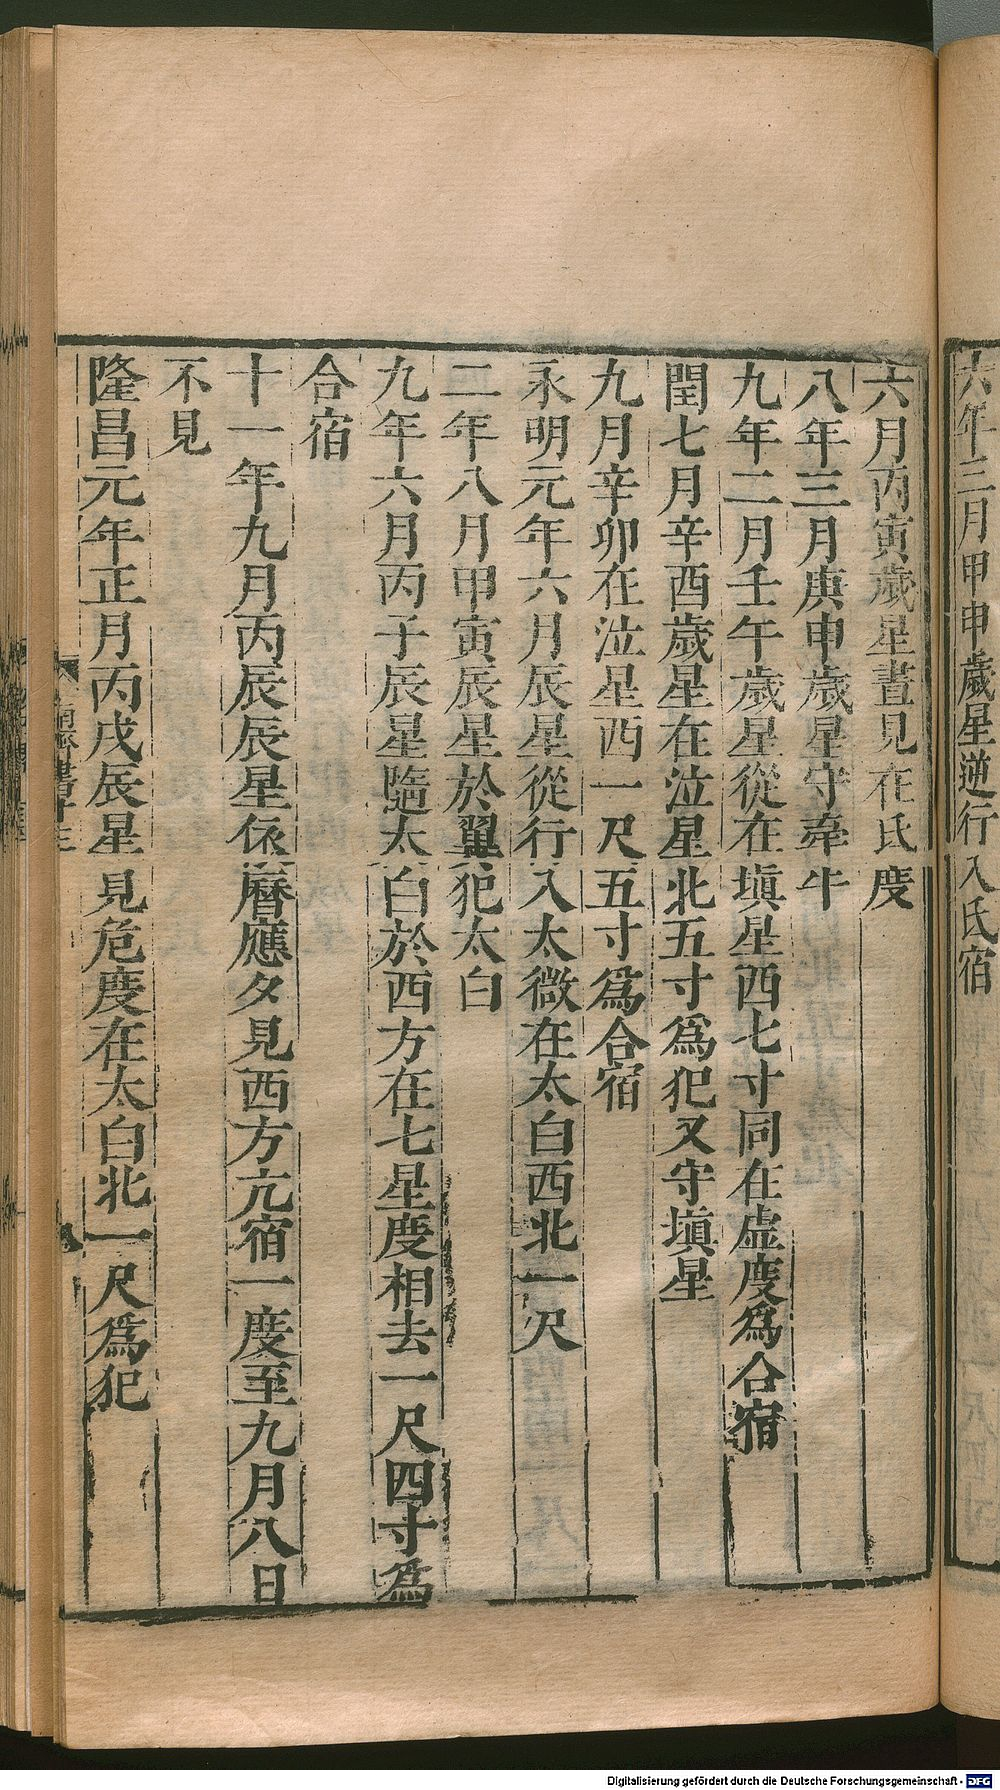 六年三月甲申歲星逆行入氐宿
六月丙寅歲星晝見在氐度
八年三月庚申歲星守牽牛
九年二月壬午歲星從在塡星西七寸同在虛度爲合宿
閏七月辛酉歲星在泣星北五寸爲犯又守塡星
九月辛卯在泣星西一尺五寸爲合宿
永明元年六月辰星從行入太微在太白西北一尺
二年八月甲寅辰星於翼犯太白
九年六月丙子辰星隨太白於西方在七星度相去一尺四寸爲
合宿
十一年九月丙辰辰星依曆應夕見西方亢宿一度至九月八日
不見
隆昌元年正月丙戌辰星見危度在太白北一尺爲犯
Digitalisierung gefördert durch die Deutsche Forschungsgemeinschaft - DFG